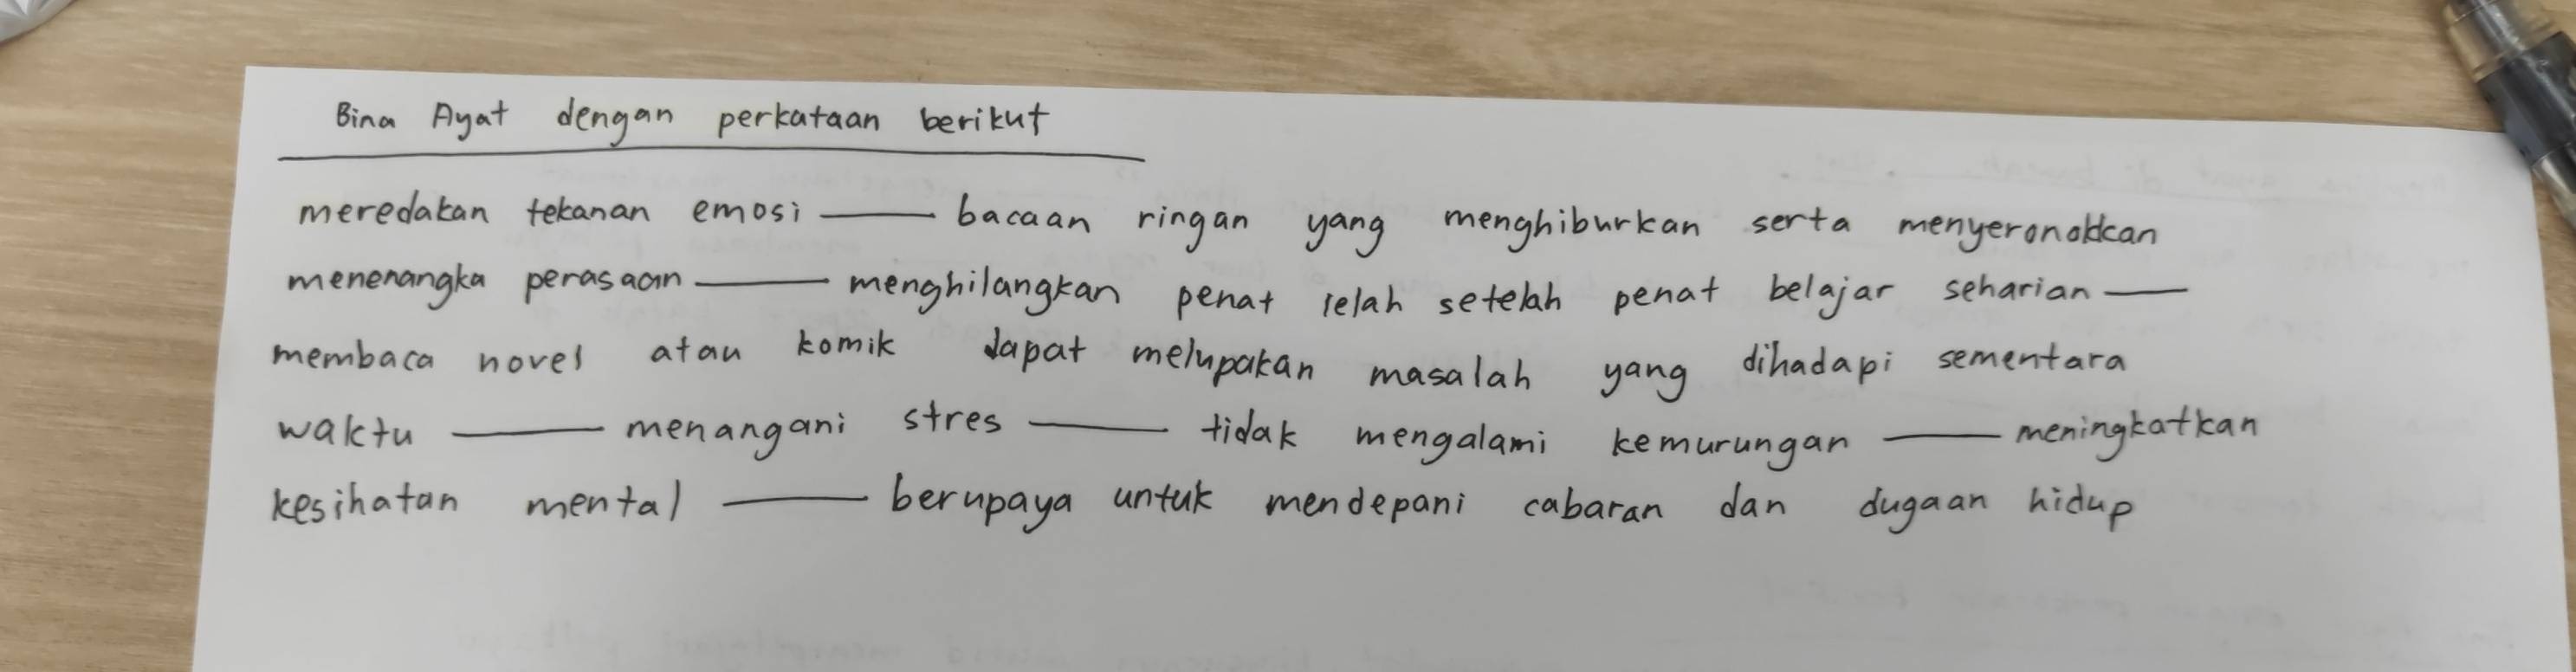 Bina Ayat dengan perkataan berikut
meredakan tekanan emosi —— bacaan ringan yang menghiburkan serta menyeronokkan
menenangka perasaan —— menghilangkan penat lelah setelah penat belajar seharian ——
membaca novel atau komik dapat melupakan masalah yang dihadapi sementara
waktu —— menangani stres —— tidak mengalami kemurungan —— meningkatkan
kesihatan mental —— berupaya untuk mendepani cabaran dan dugaan hidup